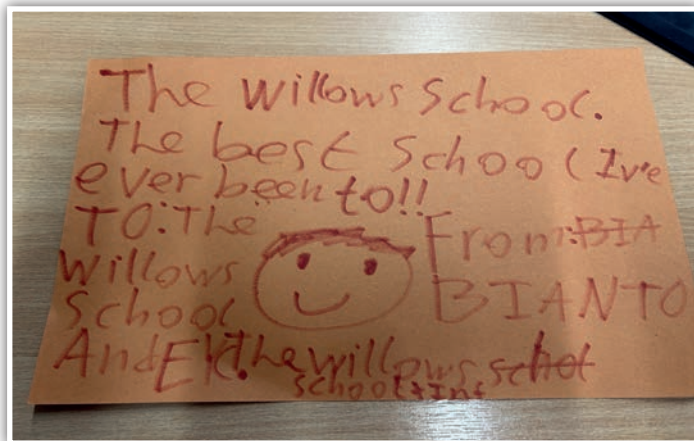 The Willows School.
The best School I've
ever been to!!
TO: The
Willows
School
From: BIA
BIANTO
And The willows schol
school